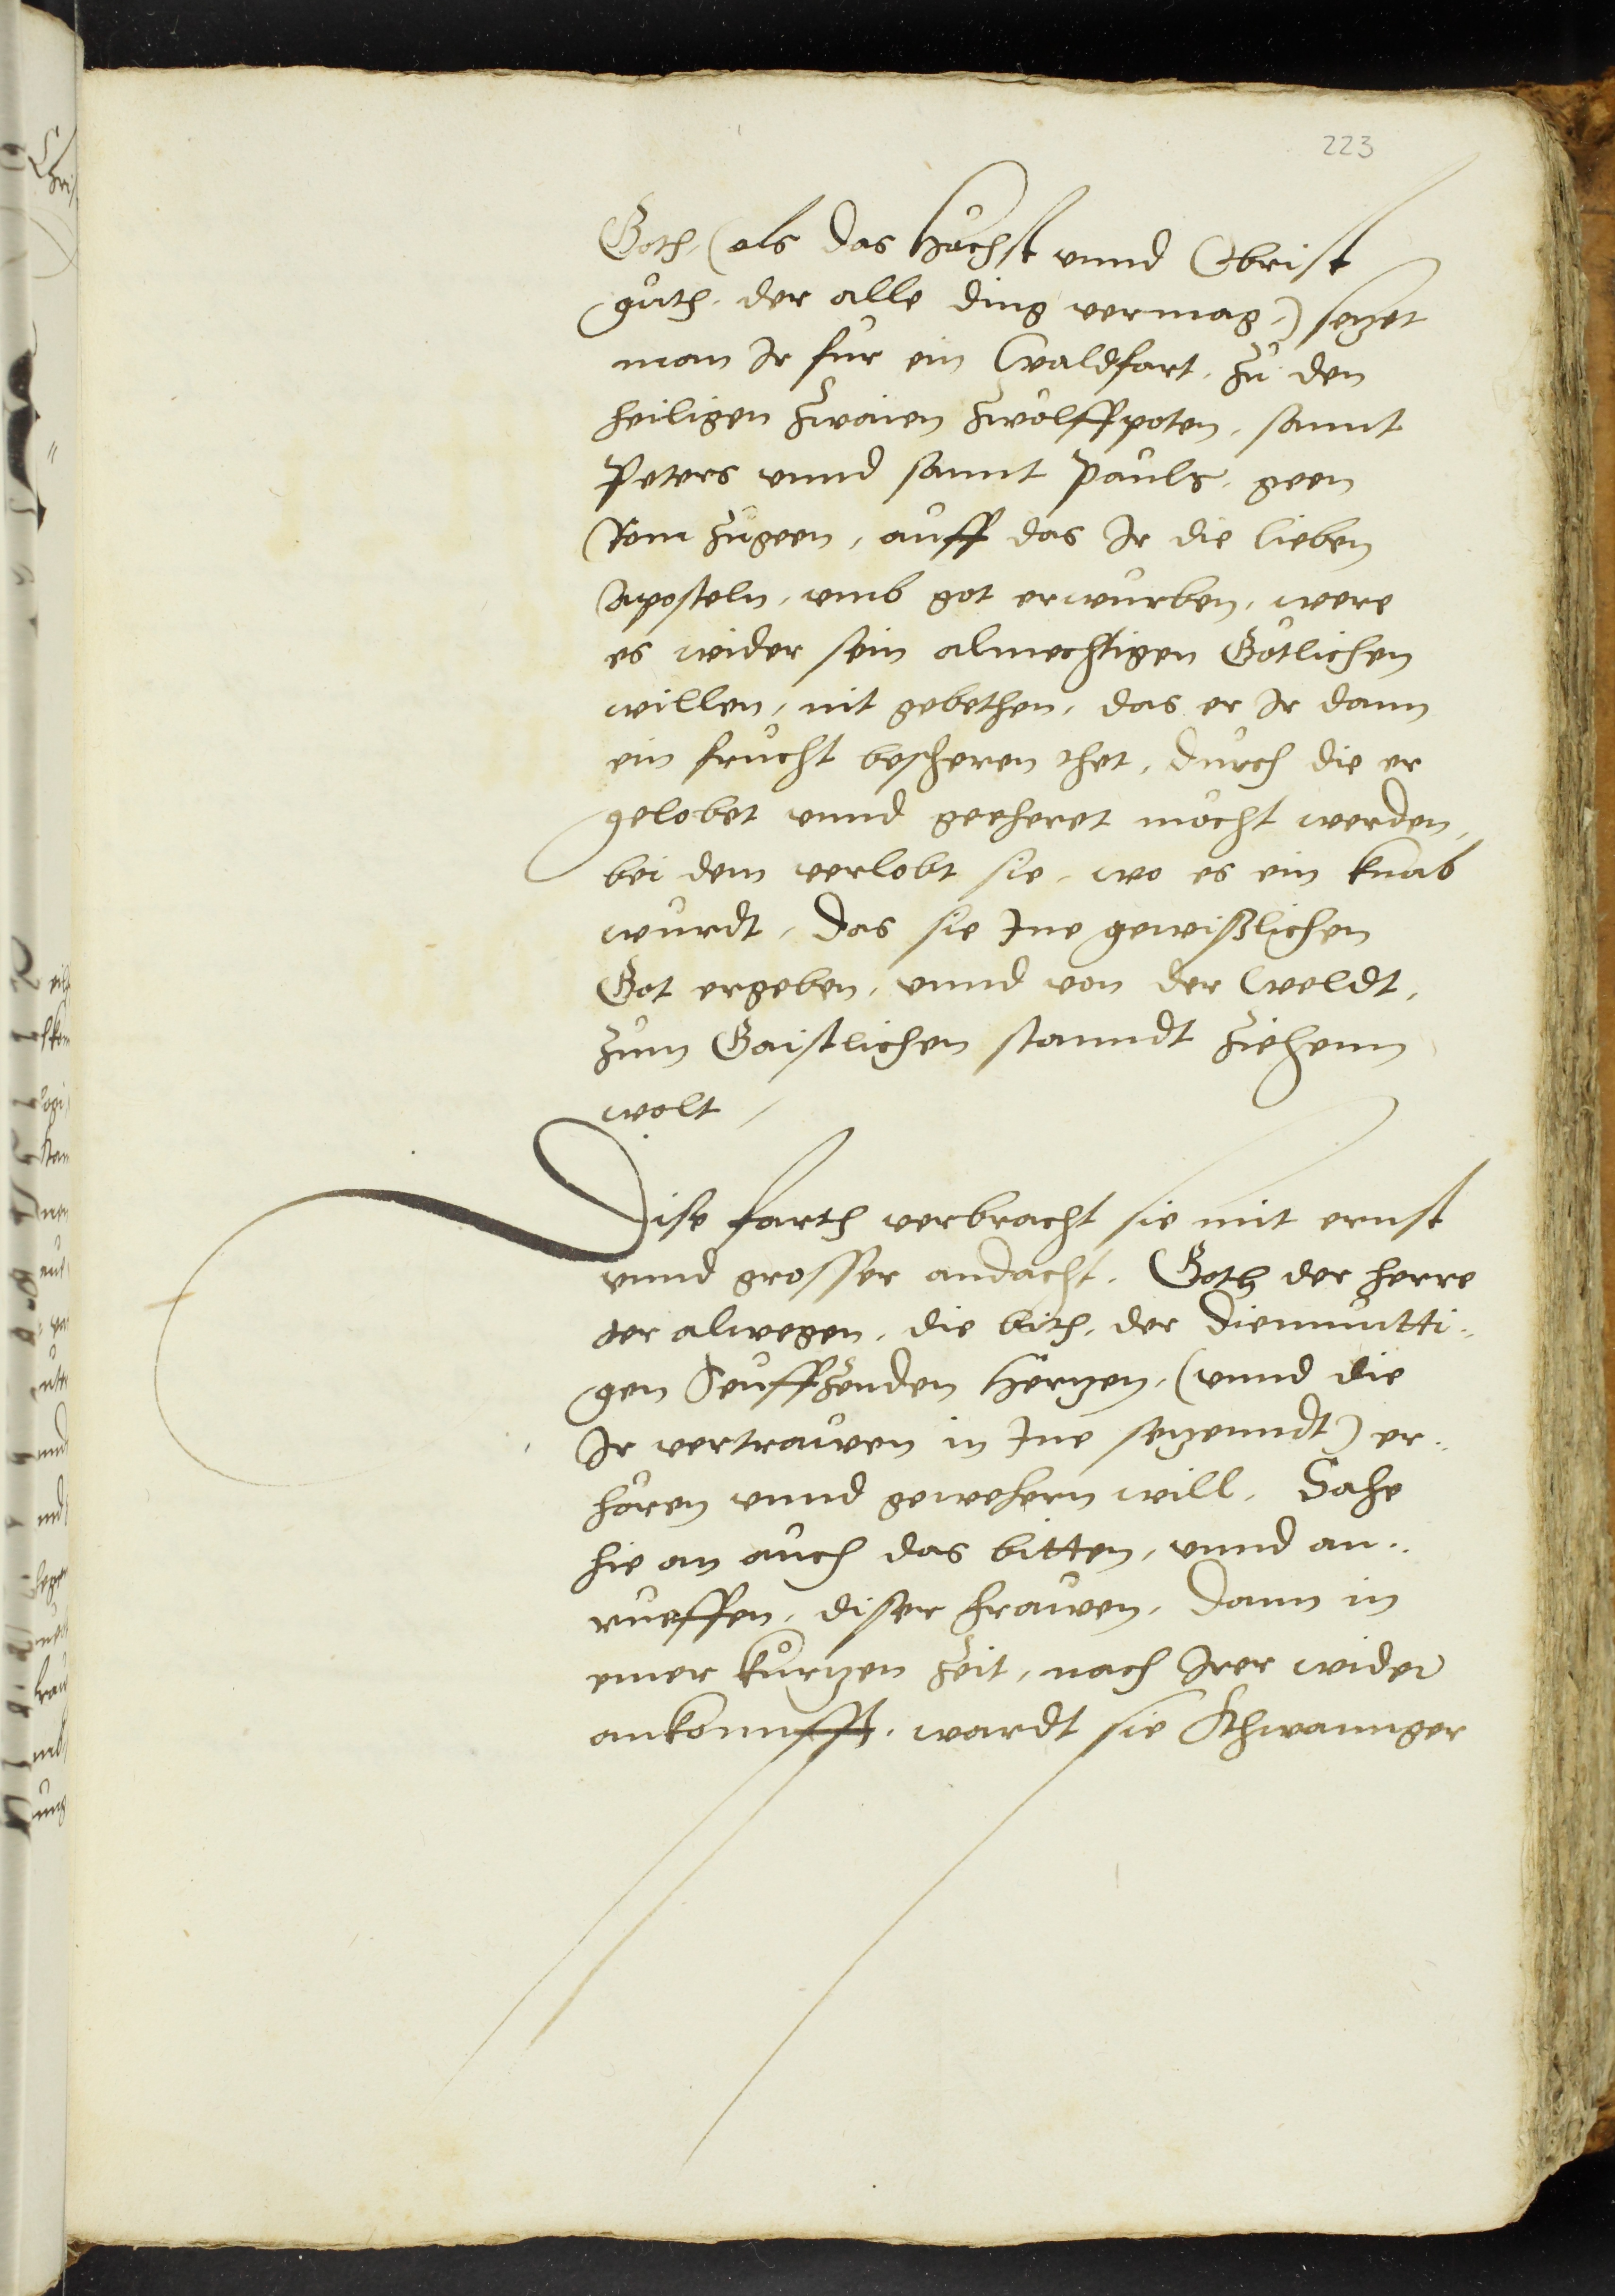 223
Goth, (als das höchst vnnd Obrist
guth, der alle ding vermag,) setzet
man Ir für ein Waldfart, zu den
heiligen zwaien zwölffpoten, sannt
Peters vnnd sannt Pauls, geen
Rom zugeen, auff das Ir die lieben
Aposteln, vmb got erwurben, were
es wider sein almechtigen Götlichen
willen, nit gebethen, das er Ir dann
ein frucht bescheren thet, durch die er
gelobet vnnd geeheret möcht werden,
bei dem verlobt sie, wo es ein knab
wurdt, das sie Ine gewißlichen
Got ergeben, vnnd von der Weldt,
zum Gaistlichen stanndt ziehenn
wolt,
Dise farth verbracht sie mit ernst
vnnd grosser andacht, Goth der herre
der alwegen, die bith, der diemutti-
gen Seuffzenden Hertzen, (vnnd die
Ir vertrauwen in Ine setzenndt) er-
hören vnnd gewehern will, Sahe
hie an auch das bitten, vnnd an-
rueffen, diser frauwen, dann in
einer kurtzen zeit, nach Irer wider
ankonnfft, wardt sie Schwannger